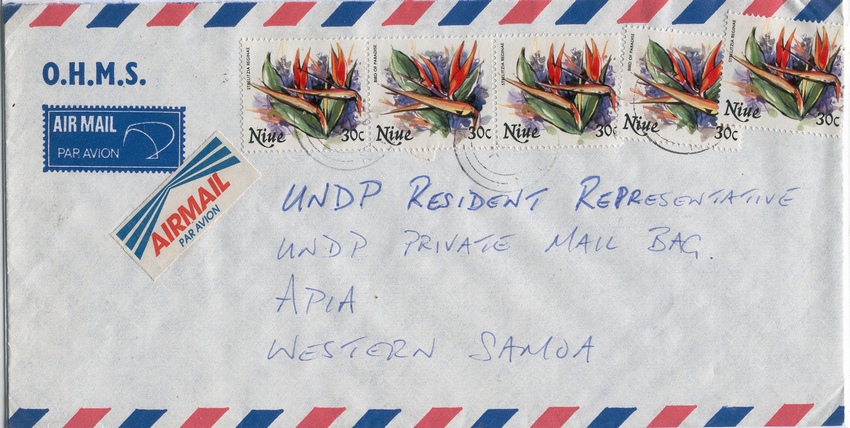 O.H.M.S.
AIR MAIL
PAR AVION
AIRMAIL
PAR AVION
STRELITZIA REGINAE
Niue 30c
BIRD OF PARADISE
Niue 30c
STRELITZIA REGINAE
Niue 30c
BIRD OF PARADISE
Niue 30c
STRELITZIA REGINAE
Niue 30c
UNDP RESIDENT REPRESENTATIVE
UNDP PRIVATE MAIL BAG.
APIA
WESTERN SAMOA